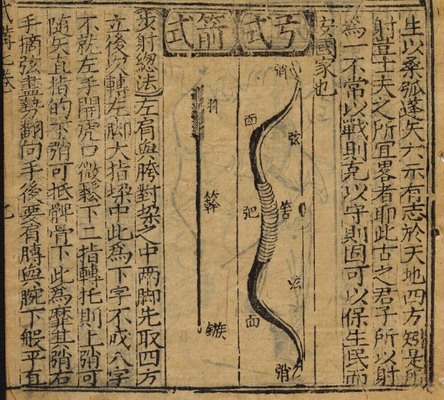 生以桑弧蓬矢六示有志於天地四方矧是所
射豈丈夫之所宜畧者耶此古之君子所以射
爲一不常以戰則克以守則固可以保生民而
安國家也
弓式
箭式
弰
弦
面
弝
面
弰
羽
簳
鏃
步射總法左肩與胯對垛之中兩脚先取四方
立後次轉左脚大指垛中此爲丁字不成八字
不就左手開虎口微鬆下二指轉托則上弰可
隨矢直指的下弰可抵髀骨下此爲靡其弰右
手摘弦盡勢翻向手後要肩膊與腕下般平直